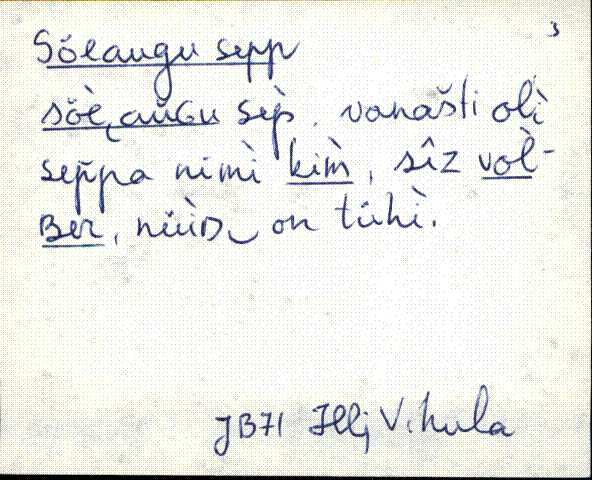 3
Sõeaugu sepp
sŏè̮ aŭGu sèp̀, vanašti olì
sep̆pa nimì kìm̀, sîz vòl-
Ber, nüüD‿ on tühì.
JB71 Hlj Vihula